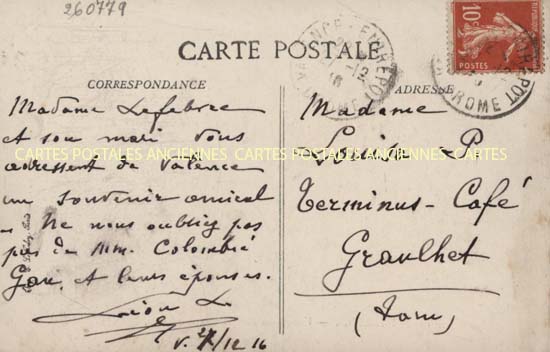 260779
10c
POSTES
CARTE POSTALE
CORRESPONDANCE
ADRESSE
Madame Lefebvre
et son mari vous
adressent de Valence
un souvenir amical
Ne nous oubliez pas
de MM. Colombié
et leurs épouses.
Léon L
V. 27/12 16
Madame
Louise P
Terminus-Café
Graulhet
(Tarn)
CARTES POSTALES ANCIENNES CARTES POSTALES ANCIENNES CARTES
VALENCE ENTREPOT
DROME
ENTREPOT
DROME